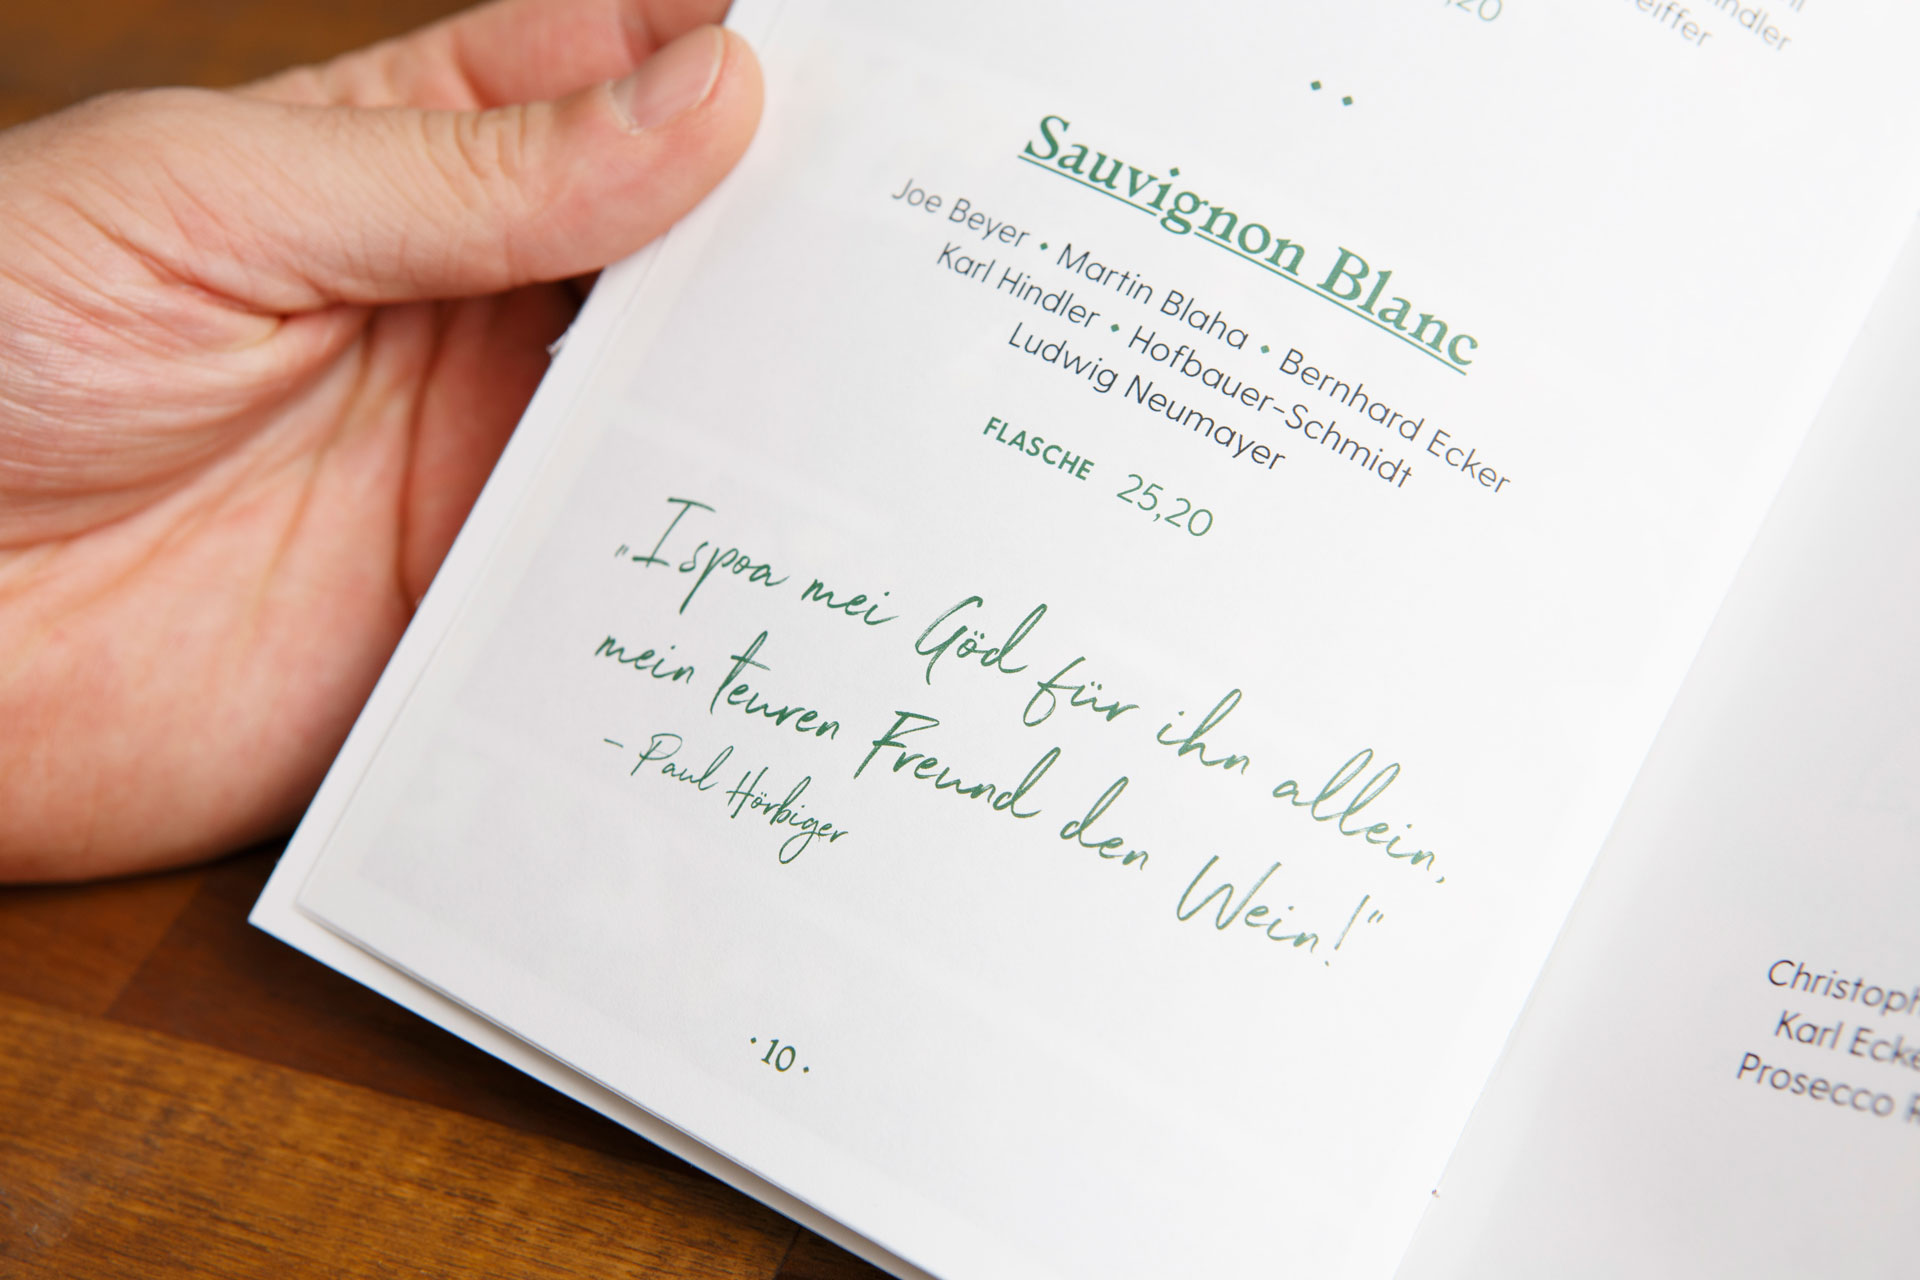 ,20
indler
eiffer
Sauvignon Blanc
Joe Beyer • Martin Blaha • Bernhard Ecker
Karl Hindler • Hofbauer-Schmidt
Ludwig Neumayer
FLASCHE 25,20
„I spoa mei Göd für ihn allein,
mein teuren Freund den Wein!“
- Paul Hörbiger
· 10 ·
Christoph
Karl Ecke
Prosecco R